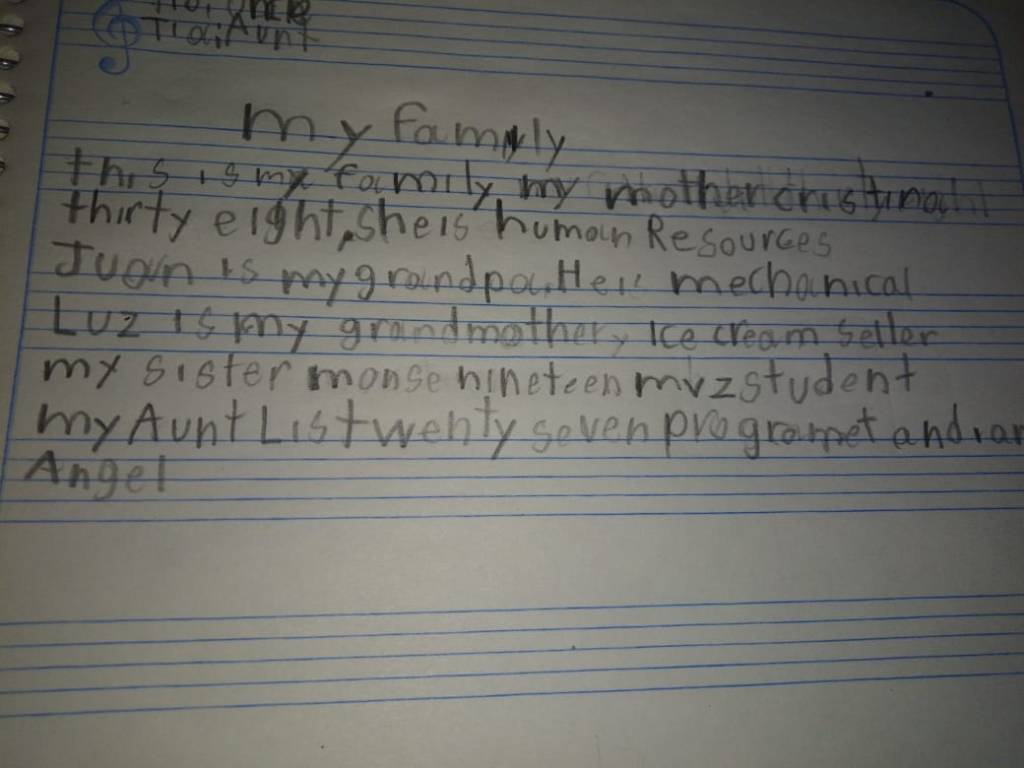 Tia: Aunt
my family
this is my family my mother cristina
thirty eight, she is human Resources
Juan is my grandpa. He is mechanical
Luz is my grandmother, Ice cream seller
my sister monse nineteen mvz student
my Aunt Lis twenty seven programet and
Angel